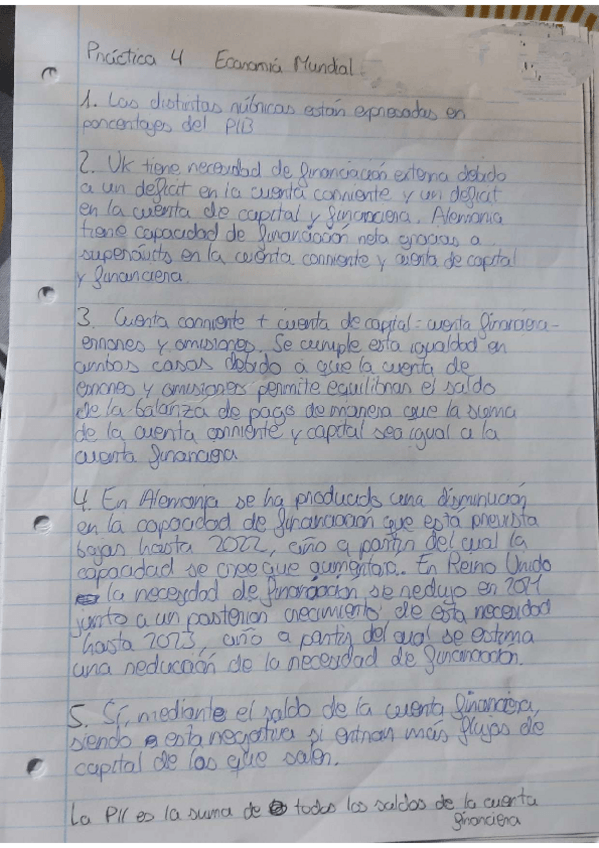 Práctica 4 Economía Mundial.
1. Las distintas rúbricas están expresadas en
porcentajes del PIB
2. UK tiene necesidad de financiación externa debido
a un deficit en la cuenta corriente y un deficit
en la cuenta de capital y financiera. Alemania
tiene capacidad de financiación neta gracias a
superávits en la cuenta corriente y cuenta de capital
y financiera.
3. Cuenta corriente + cuenta de capital = cuenta financiera -
errores y omisiones. Se cumple esta igualdad en
ambos casos debido a que la cuenta de
errores y omisiones permite equilibrar el saldo
de la balanza de pago de manera que la suma
de la cuenta corriente y capital sea igual a la
cuenta financiera
4. En Alemania se ha producido una disminución
en la capacidad de financiación que está prevista
bajar hasta 2022, año a partir del cual la
capacidad se cree que aumentara. En Reino Unido
la necesidad de financiación se redujo en 2021
junto a un posterior crecimiento de esta necesidad
hasta 2023, año a partir del cual se estima
una reducción de la necesidad de financiación.
5. Sí, mediante el saldo de la cuenta financiera,
siendo esta negativa si entran más flujos de
capital de los que salen.
La PII es la suma de todos los saldos de la cuenta
financiera